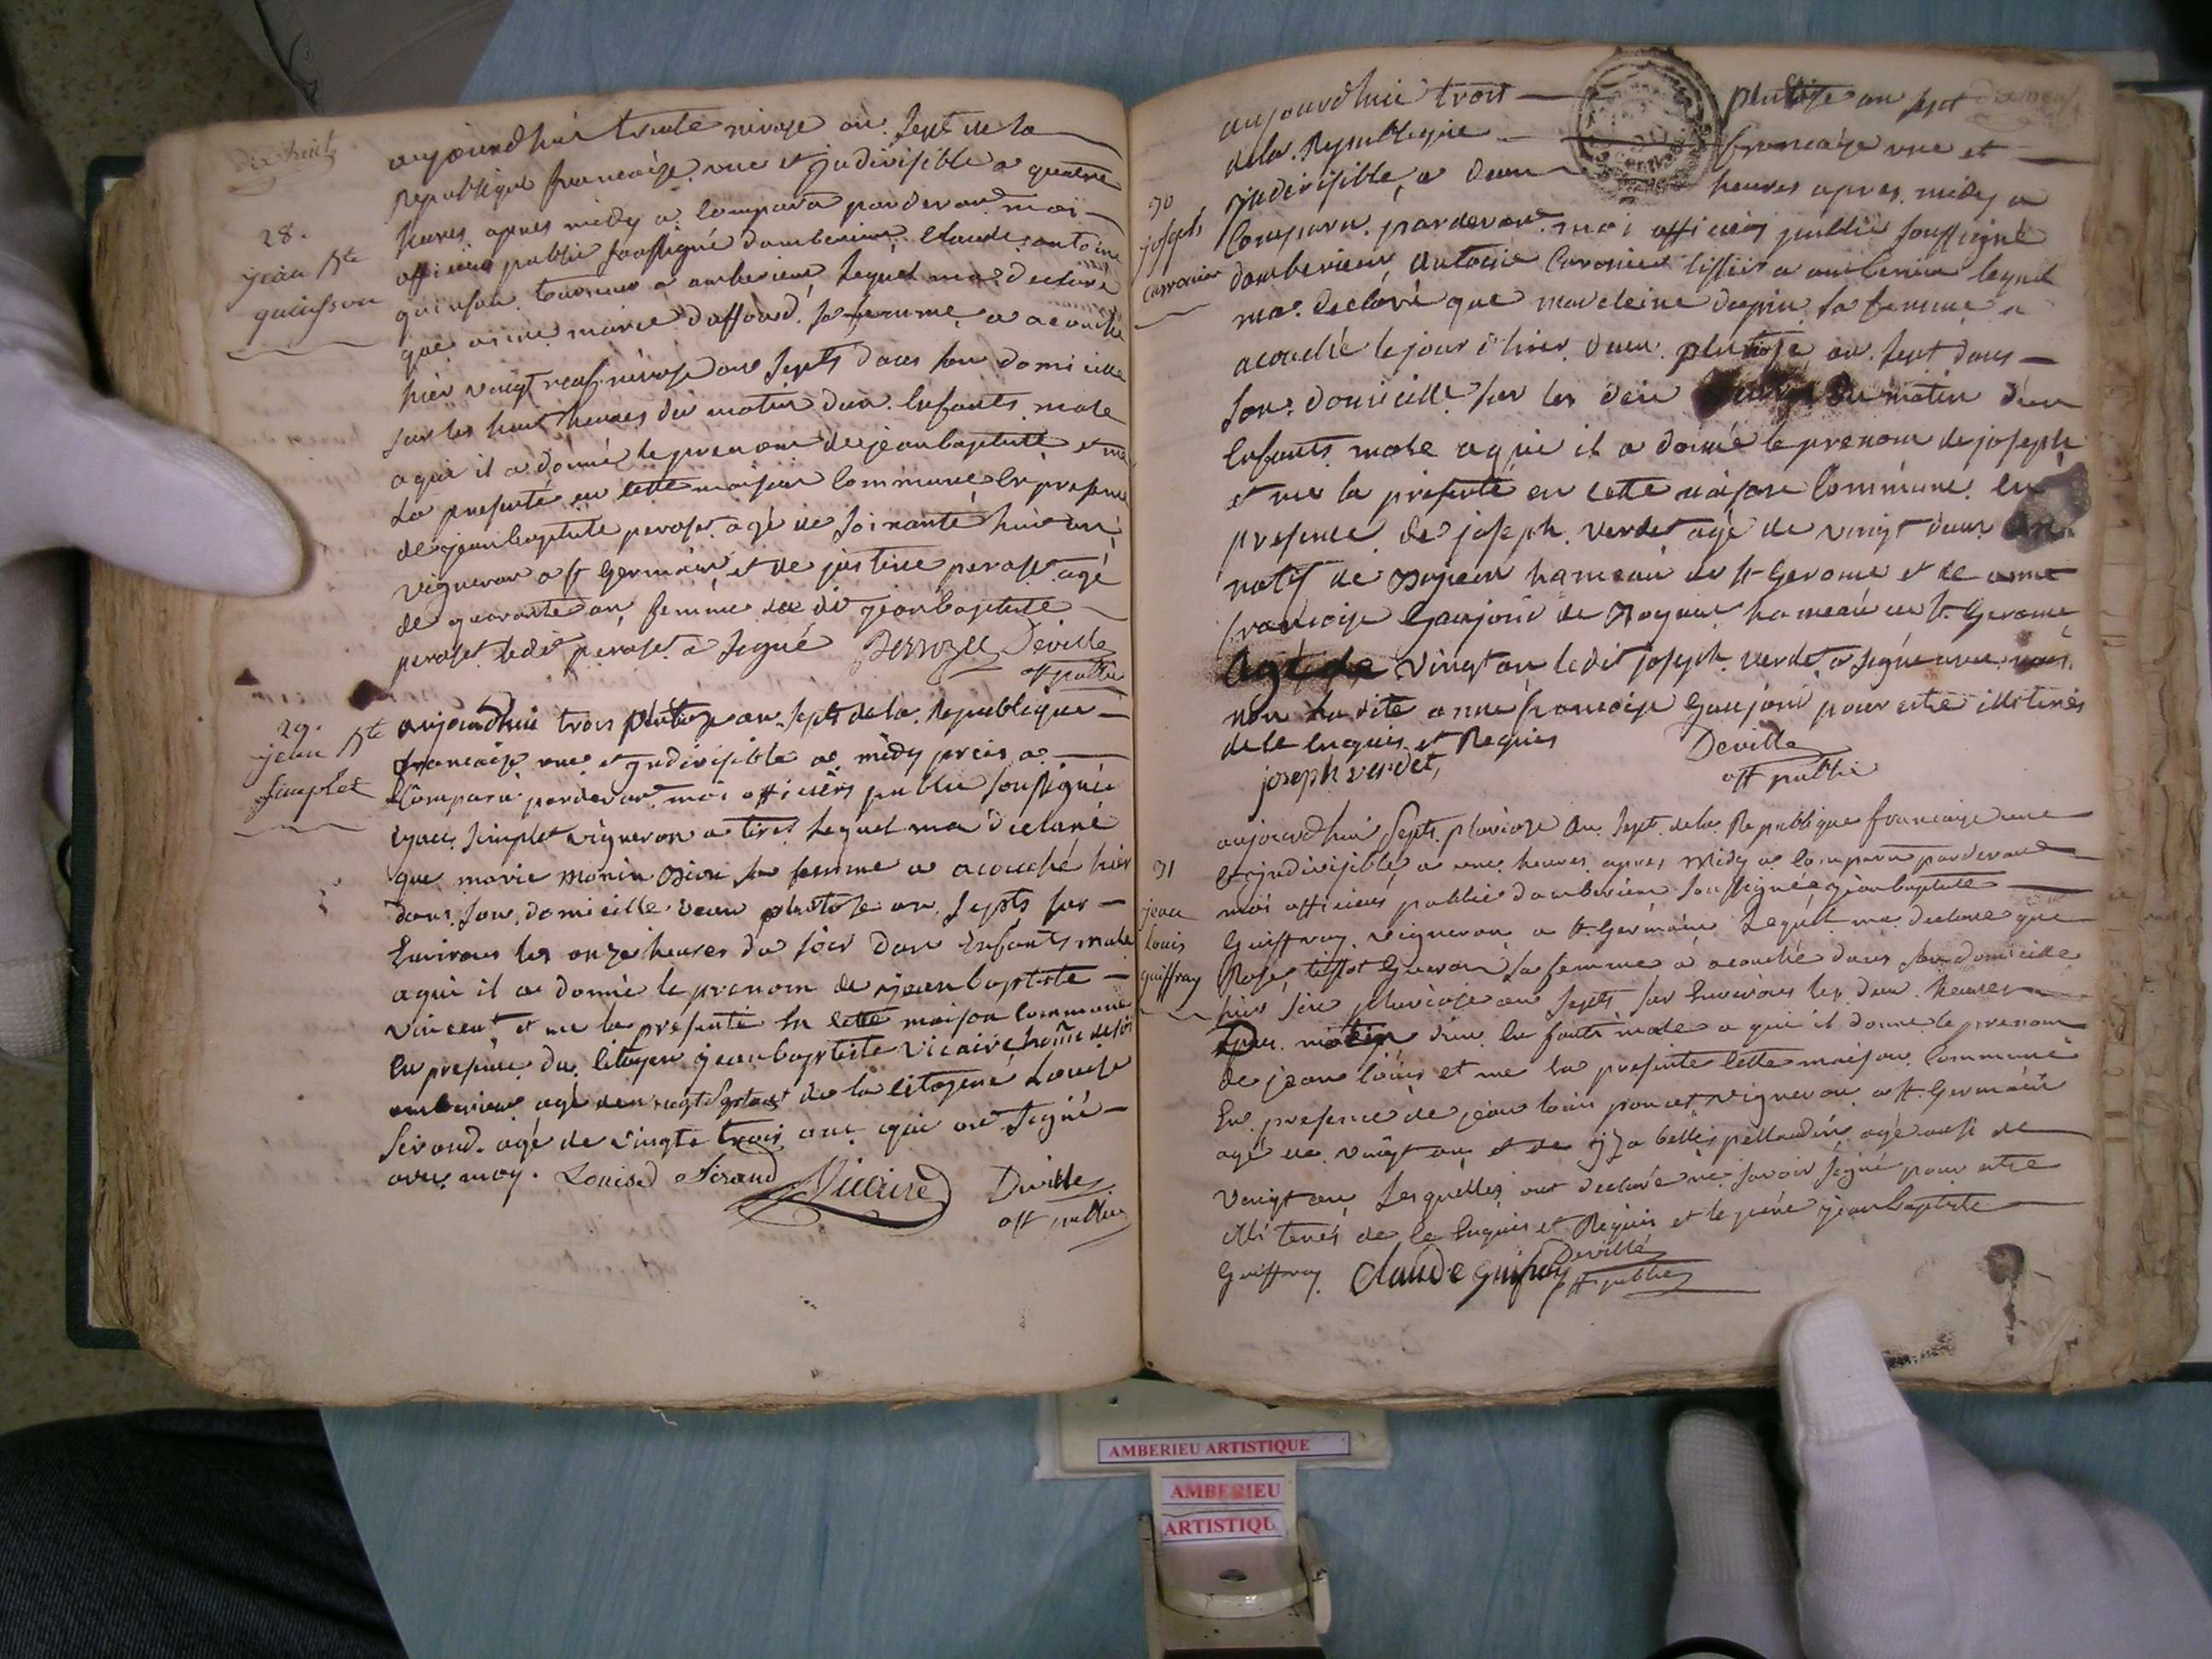 dix huit
28.
jean Bte
quinson
aujourdhui trente nivose an Sept de la
Republique francaise une et jndivisible a quatre
heures apres midy a Comparu pardevant moi
officier public soussigné damberieux Claude antoine
quinson tourneur a amberieux lequel ma declaré
que marie daffoud sa femme a acouché
hier vingt neuf nivose an Sept dans son domicille
sur les huit heures du matin dun Enfants male
a qui il a donné le prenom de jean baptiste et me
La presenté en cette maison Commune En presence
de jean baptiste perose agé de soixante huit an
vigneron a st Germain et de justine perose agé
de quarante an femme du dit jean baptiste
perose ledit perose a Signé Perroze Deville
off public
29.
jean Bte
Simplet
aujourdhui trois pluviose an Septs de la Republique
francaise une et jndivisible a midy precis a
Comparu pardevant moi officiers public soussignée
Simplet vigneron a tiret lequel ma declaré
que marie sa femme a acouché hier
dans son domicille deux pluviose an Septs sur
Environs les onze heures du soir dun Enfants male
a qui il a donné le prenom de jean baptiste
vincent et me la presenté En cette maison Commune
En presence du Citoyen jean baptiste vicaire homme de loi
amberieux agé de vingt Septans et de la Citoyene Louise
Sirand agé de vingte trois ans qui ont Signé
avec moy. Louise Sirand Vicaire Deville
off public
dix neuf
30
joseph
carronier
aujourdhui trois pluviose an sept
de la Republique francaise une et
jndivisible a deux heures apres midy a
Comparu pardevant moi officier public soussigné
damberieux antoine Caronier tissier a amberieu lequel
ma declaré que madeleine dupin sa femme a
acouché le jour d'hier deux pluviose an Sept dans
son domicille sur les dix heures du matin dun
Enfants male a qui il a donné le prenom de joseph
et me la presenté en cette maison Commune En
presence de joseph verdet agé de vingt deux an
natif de hameau de st Gerome et de anne
francoise Gaujoni de hameau de st Gerome
agé de vingt an ledit joseph verdet a signé avec moi
non la dite anne francoise Gaujoni pour estre illiterés
de le Enquis et Requis Deville
joseph verdet off public
31
jean
Louis
guiffray
aujourdhui Septs pluviose an Sept de la Republique francaise une
et jndivisible a une heures apres Midy a Comparu pardevant
moi officiers public damberieu soussignée jean baptiste
Guiffray vigneron a st Germain Lequel ma declaré que
Rose tissot Gueron sa femme a acouché dans son domicille
hier six pluviose an Septs sur Environs les deux heures
du matin dun En fants male a qui il donne le prenom
de jean louis et me la presente cette maison Commune
En presence de jean louis poncet vigneron a st Germain
agé de vingt an et de jzabelles pelloudin agé aussi de
vingt an Lesquelles ont declaré ne savoir signé pour etre
illiterés de le Enquis et Requis et le pere jean baptiste
Guiffray. Claude guifray Deville
off public
AMBERIEU ARTISTIQUE
AMBERIEU
ARTISTIQU